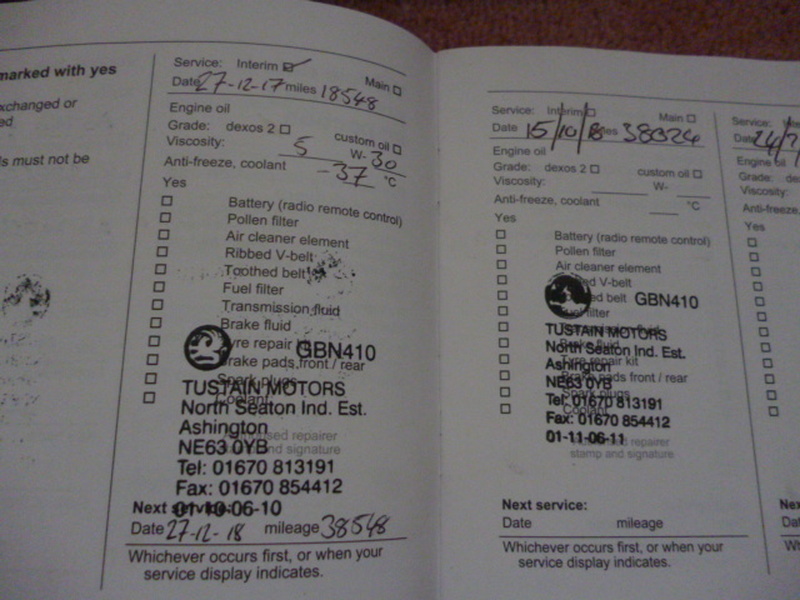 marked with yes
exchanged or
ed
ls must not be
Service: Interim ☑ Main ☐
Date 27-12-17 miles 18548
Engine oil
Grade: dexos 2 ☐ custom oil ☐
Viscosity: 5 W- 30
Anti-freeze, coolant -37 °C
Yes
☐ Battery (radio remote control)
☐ Pollen filter
☐ Air cleaner element
☐ Ribbed V-belt
☐ Toothed belt
☐ Fuel filter
☐ Transmission fluid
☐ Brake fluid
☐ Tyre repair kit
GBN410
☐ Brake pads front / rear
☐ Spark plugs
☐ Coolant
TUSTAIN MOTORS
North Seaton Ind. Est.
Ashington
NE63 0YB
Tel: 01670 813191
Fax: 01670 854412
06-10
repairer
and signature
Next service:
Date 27-12-18 mileage 38548
Whichever occurs first, or when your
service display indicates.
Service: Interim ☐ Main ☐
Date 15/10/18 miles 38024
Engine oil
Grade: dexos 2 ☐ custom oil ☐
Viscosity: W-
Anti-freeze, coolant °C
Yes
☐ Battery (radio remote control)
☐ Pollen filter
☐ Air cleaner element
☐ V-belt
☐ belt
GBN410
☐ filter
☐
☐ Brake fluid
☐ Tyre repair kit
☐ Brake pads front / rear
☐ Spark plugs
☐ Coolant
TUSTAIN MOTORS
North Seaton Ind. Est.
Ashington
NE63 0YB
Tel: 01670 813191
Fax: 01670 854412
01-11-06-11
repairer
stamp and signature
Next service:
Date mileage
Whichever occurs first, or when your
service display indicates.
Service:
Date 24/7
Engine oil
Grade:
Viscosity:
Anti-freeze,
Yes